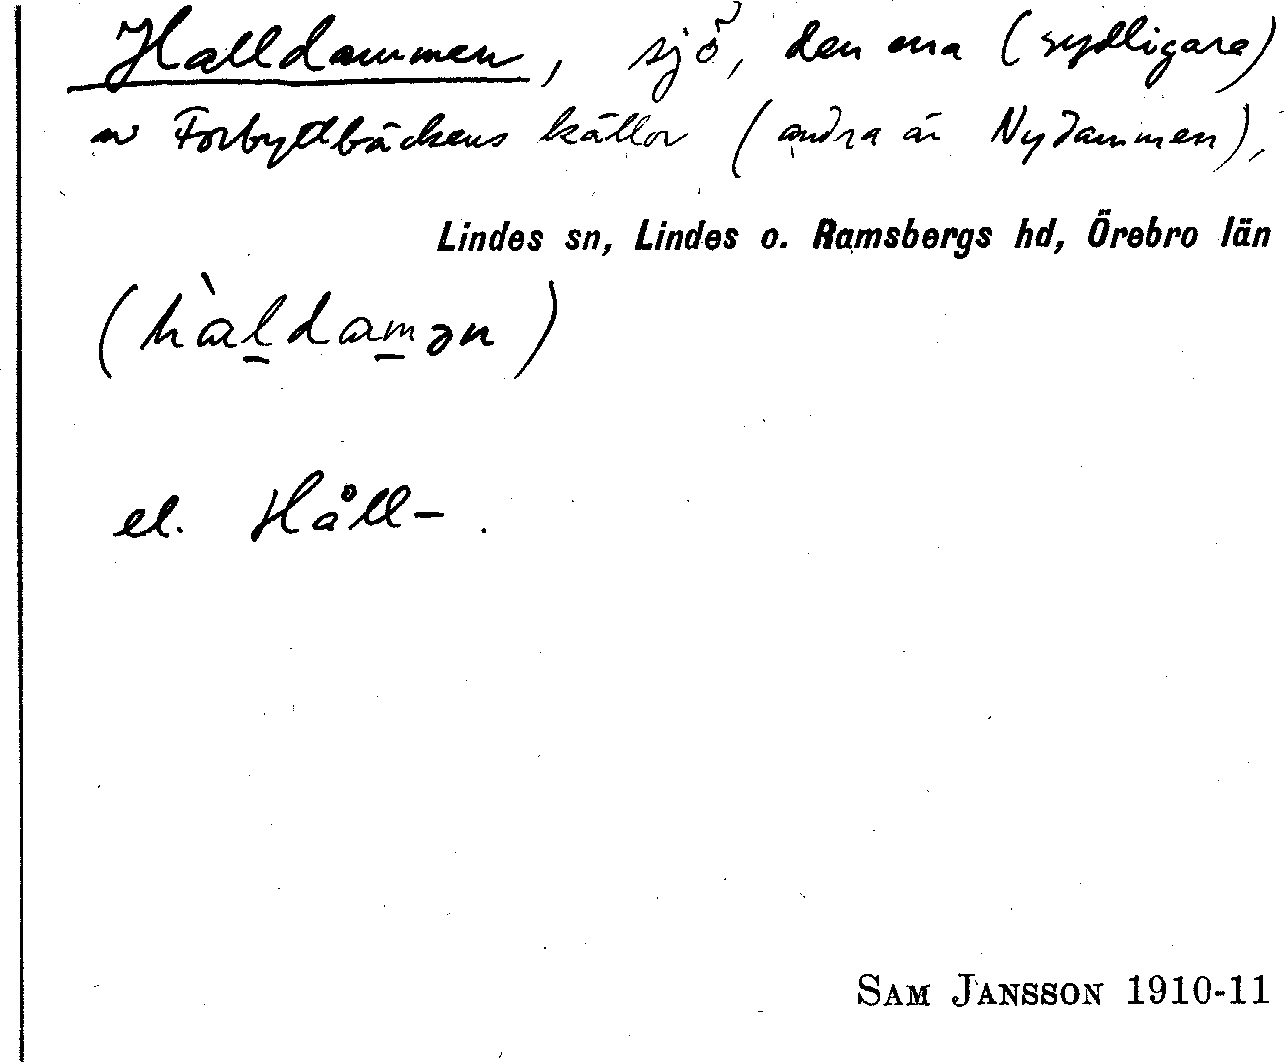 Halldammen, sjö, den ena (sydligare)
av Forbytlbäckens källor (andra är Nydammen),
Lindes sn, Lindes o. Ramsbergs hd, Örebro län
(hàl̲dam̲ən)
el. Håll-.
SAM JANSSON 1910-11